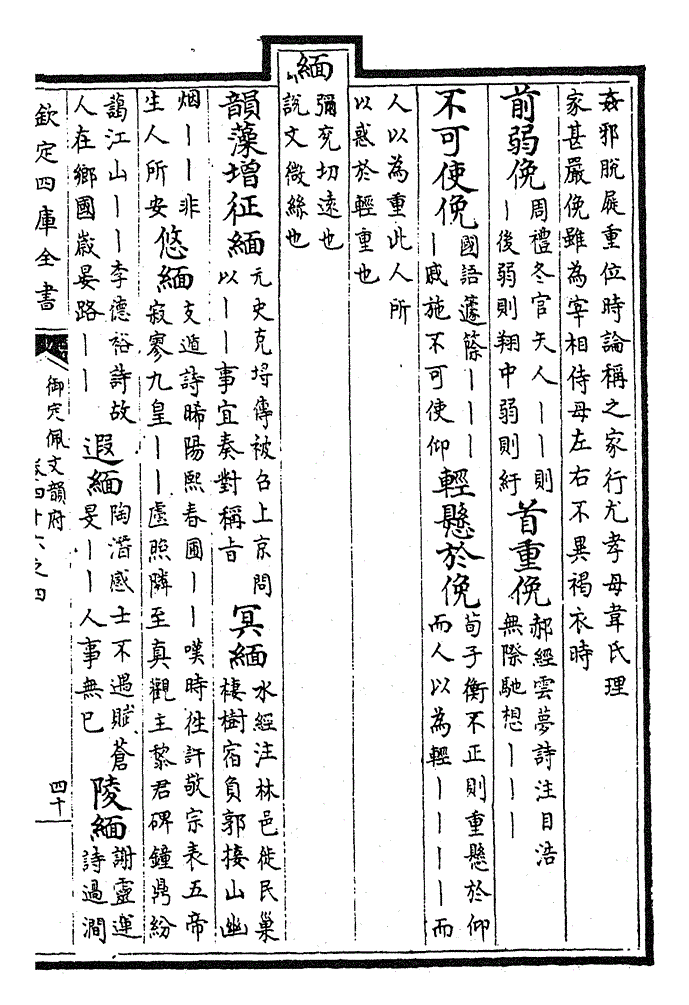 姦邪脫屣重位時論稱之家行尤孝母韋氏理
家甚嚴俛雖為宰相侍母左右不異褐衣時
前弱俛 周禮冬官矢人丨丨則丨後弱則翔中弱則紆 首重俛 郝經雲夢詩注目浩無際馳想丨丨丨
不可使俛 國語蘧篨丨丨丨丨戚施不可使仰 輕懸於俛 荀子衡不正則重懸於仰而人以為輕丨丨丨丨而
人以為重此人所以惑於輕重也
緬 彌兖切遠也說文微絲也
韻藻增征緬 元史克埓傳被召上京問以丨丨事宜奏對稱旨 冥緬 水經注林邑徙民巢棲樹宿負郭接山幽
烟丨丨非生人所安 悠緬 支遁詩晞陽熙春圃丨丨嘆時往許敬宗表五帝寂寥九皇丨丨盧照隣至真觀主黎君碑鐘鼎紛
藹江山丨丨李德裕詩故人在鄉國嵗晏路丨丨 遐緬 陶潛感士不遇賦蒼旻丨丨人事無已 陵緬 謝靈運詩過澗
欽定四庫全書
御定佩文韻府
卷四十六之四
四十